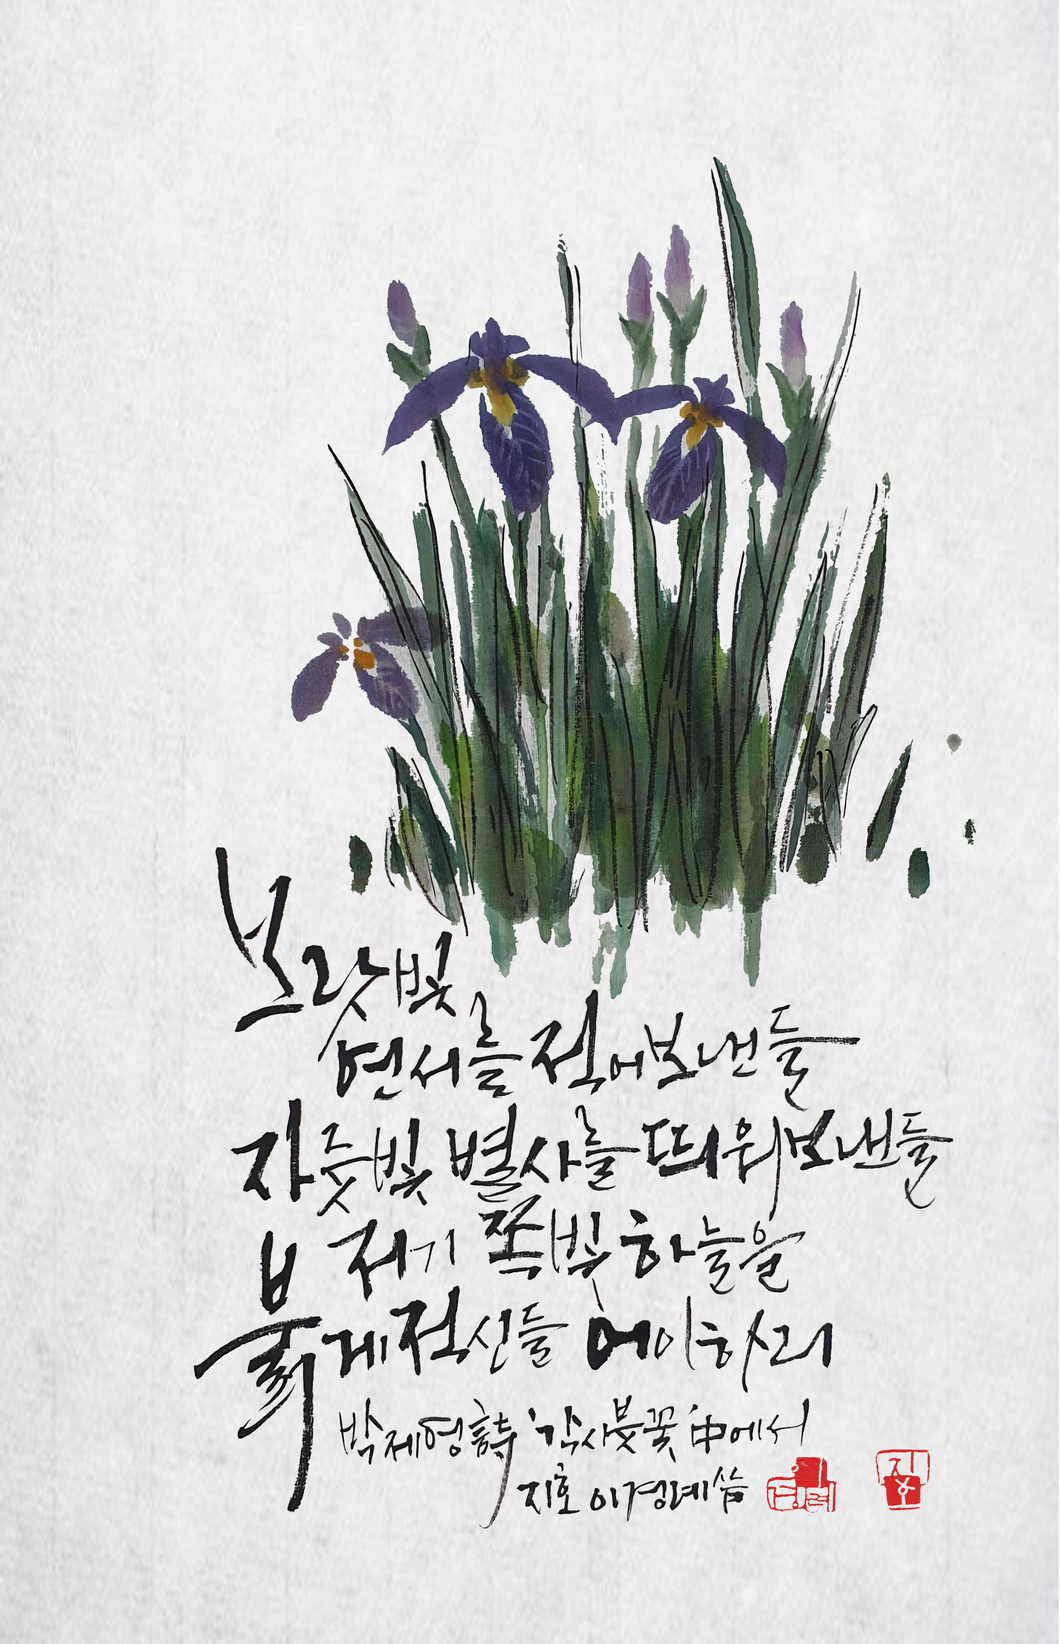 보랏빛
연서를 적어보낸들
자줏빛 별사를 띄워보낸들
저기 쪽빛 하늘을
붉게 적신들 어이하리
박제영 詩 '각시붓꽃' 中에서
지호 이경례 씀
이경례
지호